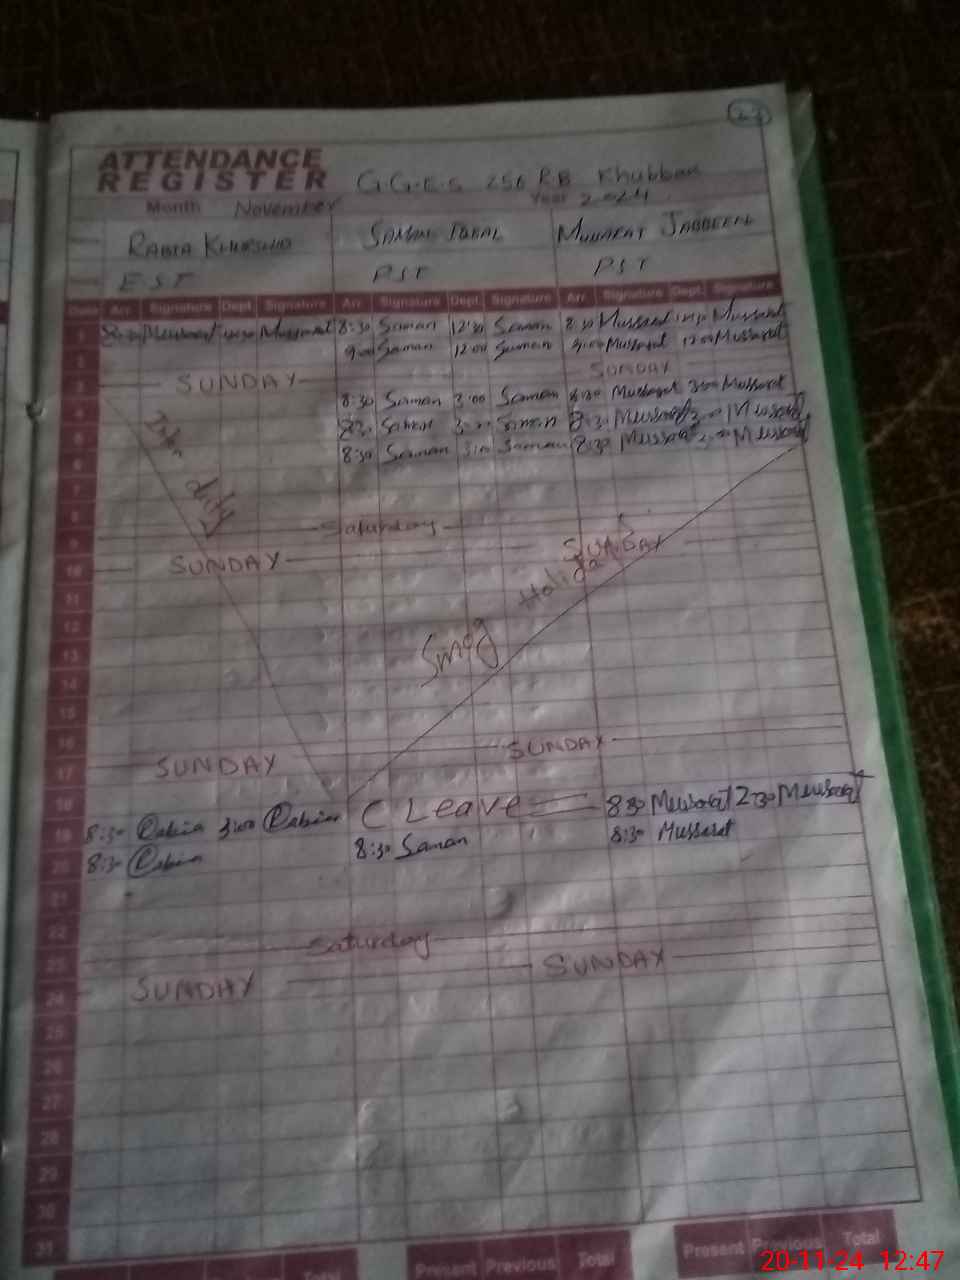 ATTENDANCE
REGISTER G.G.E.S 256 RB Khubban
Month November Year 2024
RABIA KHURSHID SAMAN IQBAL MUSSARAT JABBEEN
E.S.T P.S.T P.S.T
Date Arr. Signature Dept. Signature Arr. Signature Dept. Signature Arr. Signature Dept. Signature
1 8:30 Mussarat 12:30 Mussarat 8:30 Saman 12:30 Saman 8:30 Mussarat 12:30 Mussarat
2 9:00 Saman 12:00 Saman 9:00 Mussarat 12:00 Mussarat
3 SUNDAY SUNDAY
4 8:30 Saman 3:00 Saman 8:30 Mussarat 3:00 Mussarat
5 8:30 Saman 3:00 Saman 8:30 Mussarat 3:00 Mussarat
6 8:30 Saman 3:00 Saman 8:30 Mussarat 3:00 Mussarat
7
8
9 Saturday
10 SUNDAY SUNDAY
11 Smog Holidays
12
13
14
15
16
17 SUNDAY SUNDAY
18
19 8:30 Rabia 3:00 Rabia C Leave 8:30 Mussarat 2:30 Mussarat
20 8:30 Rabia 8:30 Saman 8:30 Mussarat
21
22
23 Saturday
24 SUNDAY SUNDAY
25
26
27
28
29
30
31
Total Present Previous Total Present Previous Total
20-11-24 12:47